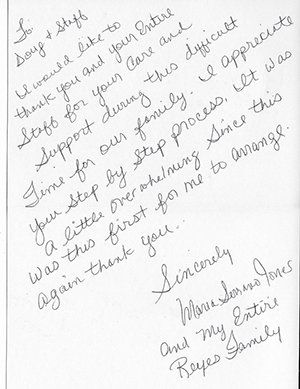 To
Doug & Staff
I would like to
thank you and your Entire
Staff for your Care and
Support during this difficult
Time for our family. I appreciate
your Step by Step process. It was
A little overwhelming Since this
was this first for me to arrange.
Again thank you.
Sincerely
Maria Serrano Jones
and My Entire
Reyes Family